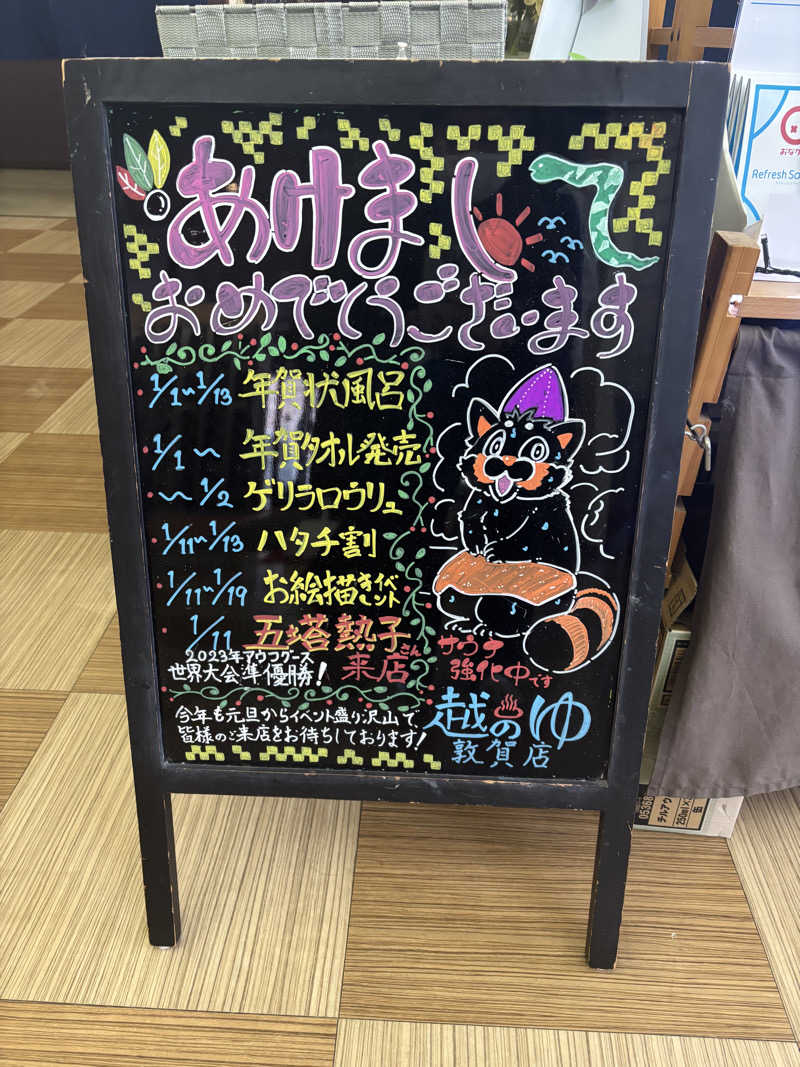 あけまして
おめでとうございます
1/1〜1/13 年賀状風呂
1/1〜 年賀タオル発売
〜1/2 ゲリラロウリュ
1/11〜1/13 ハタチ割
1/11〜1/19 お絵描きイベント
1/11 五塔熱子さん
2023年アウフグース
世界大会準優勝! 来店
サウナ
強化中です
今年も元旦からイベント盛り沢山で、
皆様のご来店をお待ちしております!
越のゆ
敦賀店
Refresh